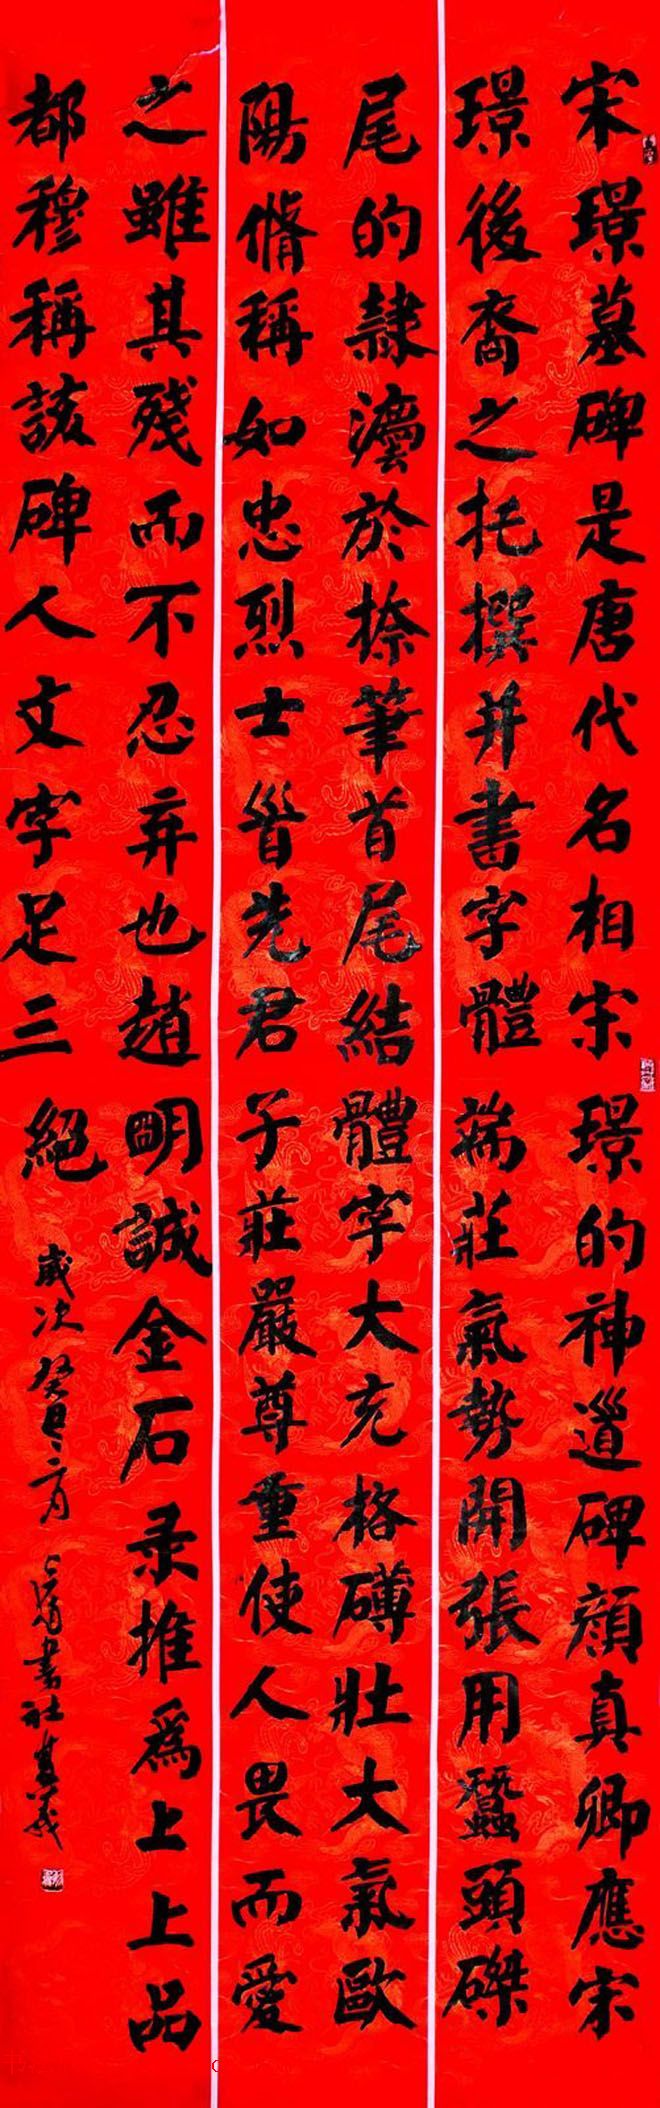 宋璟墓碑是唐代名相宋璟的神道碑顔真卿應宋
璟後裔之托撰并書字體端莊氣勢開張用蠶頭磔
尾的隸灋於捺筆首尾結體字大充格磚壯大氣歐
陽脩稱如忠烈士晉先君子莊嚴尊重使人畏而愛
之雖其殘而不忍弃也趙明誠金石录推爲上上品
都穆稱該碑人文字足三絕
歲次癸丑
書社